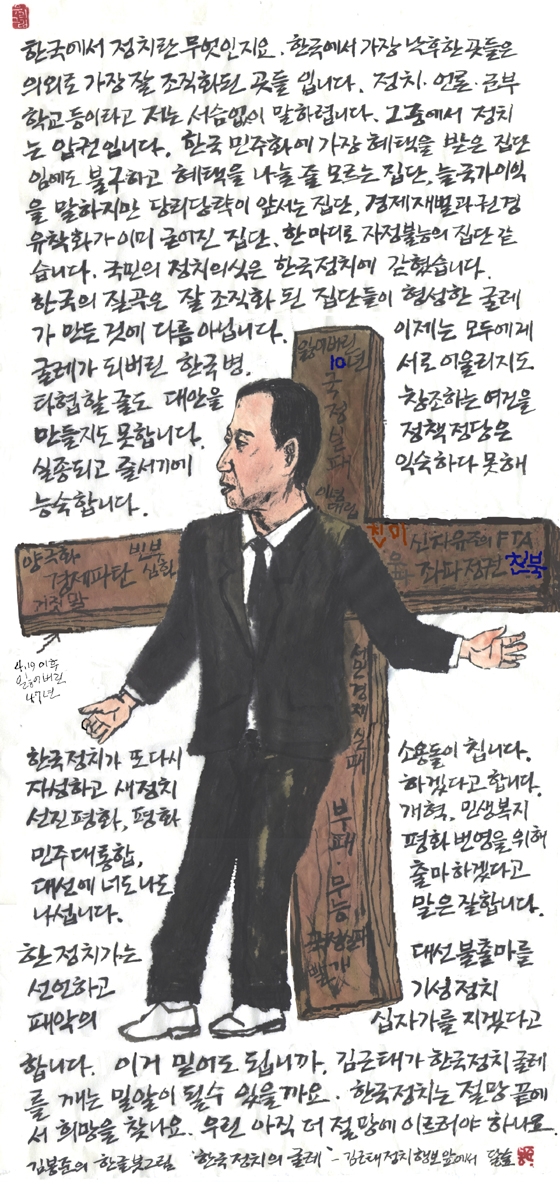 한국에서 정치란 무엇인지요. 한국에서 가장 낙후한 곳들은
의외로 가장 잘 조직화된 곳들 입니다. 정치·언론·군부
학교등이라고 저는 서슴없이 말하렵니다. 그중에서 정치
는 압권입니다. 한국 민주화에 가장 혜택을 받은 집단
임에도 불구하고 혜택을 나눌 줄 모르는 집단, 늘 국가이익
을 말하지만 당리당략이 앞서는 집단, 경제재벌과 권경
유착화가 이미 굳어진 집단. 한마디로 자정불능의 집단 같
습니다. 국민의 정치의식은 한국정치에 갇혔습니다.
한국의 질곡은 잘 조직화 된 집단들이 형성한 굴레
가 만든 것에 다름 아닙니다.
이제는 모두에게
굴레가 되버린 한국병.
서로 어울리지도
타협할 줄도 대안을
창조하는 여건을
만들지도 못합니다.
정책정당은
실종되고 줄서기에
익숙하다 못해
능숙합니다.
잃어버린
10년
국정실패
이념
대립
양극화
빈부
심화
경제파탄
거짓말
친미
신자유주의 FTA
좌파정권
친북
4.19 이후
잃어버린
47년
서민경제 실패
부패·무능
빨갱
한국정치가 또다시
소용돌이 칩니다.
자성하고 새정치
하겠다고 합니다.
선진평화, 평화
개혁, 민생복지
민주대통합,
평화번영을 위해
대선에 너도나도
출마하겠다고
나섭니다.
말은 잘합니다.
한 정치가는
대선 불출마를
선언하고
기성정치
패악의
십자가를 지겠다고
합니다. 이거 믿어도 됩니까. 김근태가 한국정치 굴레
를 깨는 밀알이 될수 있을까요. 한국정치는 절망 끝에
서 희망을 찾나요. 우린 아직 더 절망에 이르러야 하나요.
김봉준의 한글붓그림 '한국정치의 굴레' - 김근태정치행보 앞에서